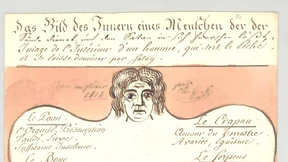 Das Bild des Innern eines Menschen der der
Sünde dienet, und den Satan in sich herrschen läßt.
Image de l'Intérieur d'un homme, qui sert le Péché
et se laisse dominer par Satan
Le Paon
l'Orgueil, Présomption
Vanité
Suffisance, Insolence
Le Bouc
Le Crapau
Amour du Terrestre
Avarice, Egoïsme
Le Serpent